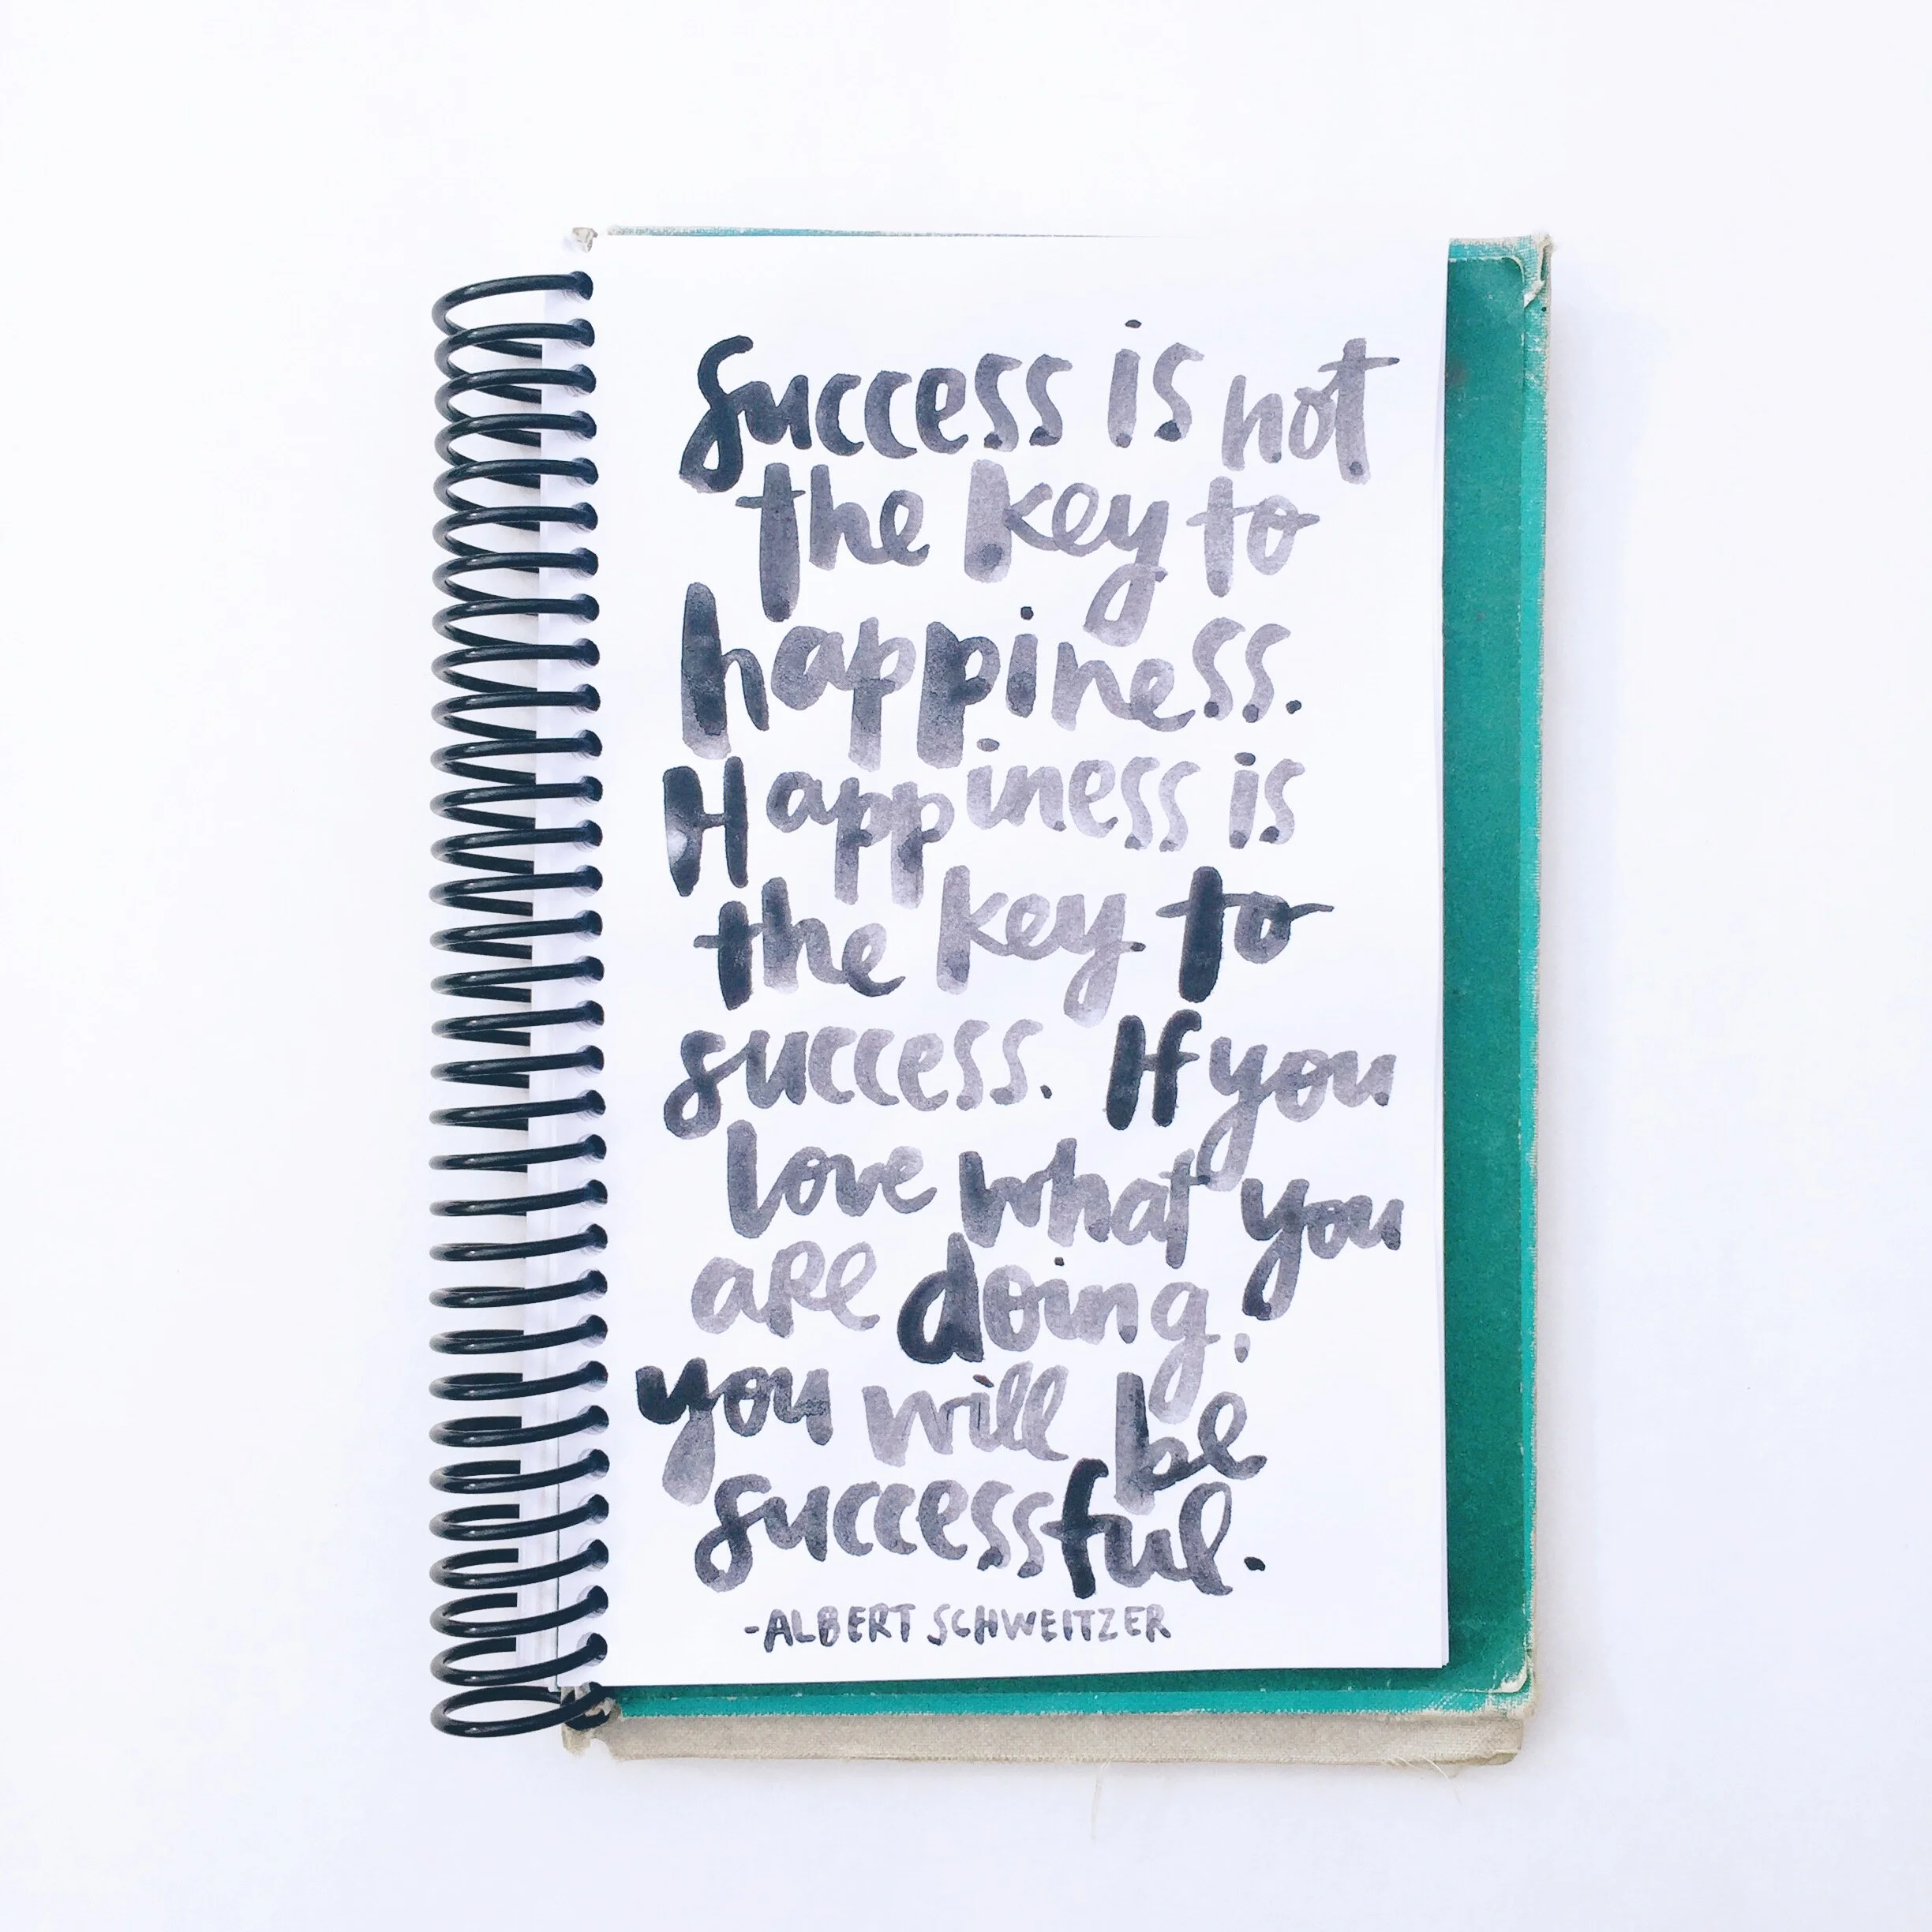 Success is not
the key to
happiness.
Happiness is
the key to
success. If you
love what you
are doing,
you will be
successful.
-ALBERT SCHWEITZER